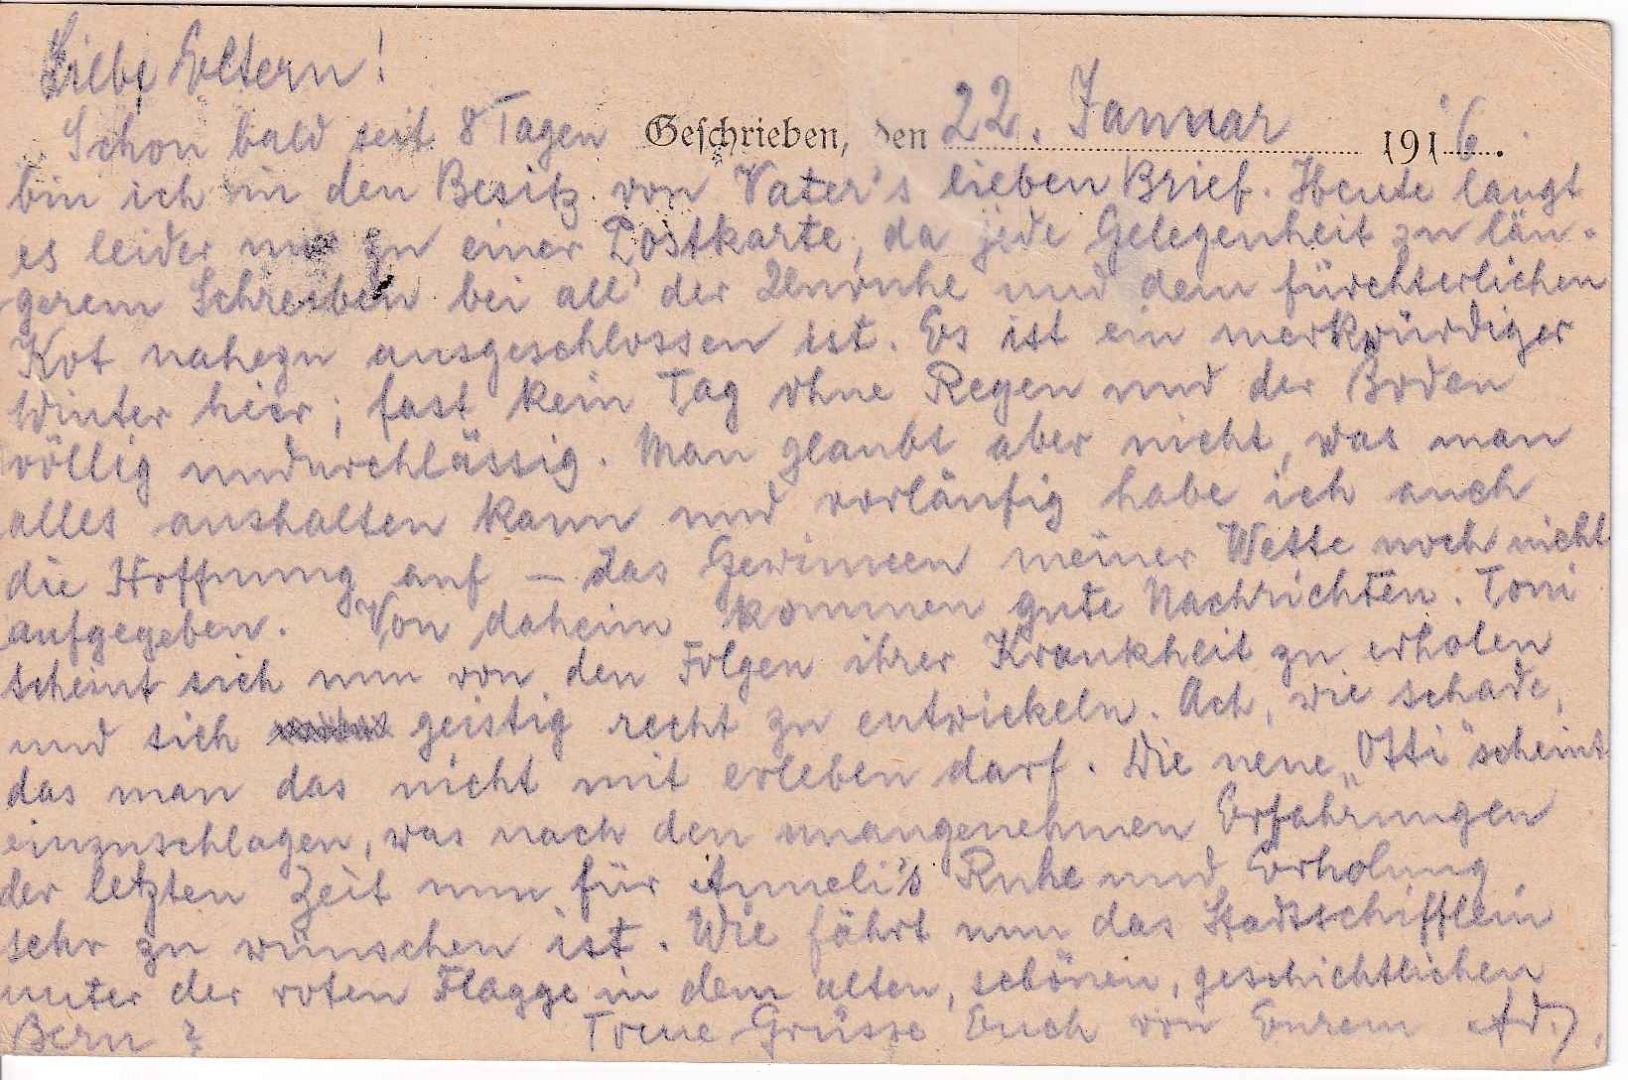 Liebe Eltern!
Schon bald seit 8 Tagen Geschrieben, den 22. Januar 1916.
bin ich in den Besitz von Vater's lieben Brief. Heute langt
es leider nur zu einer Postkarte, da jede Gelegenheit zu län-
gerem Schreiben bei all der Unruhe und dem fürchterlichen
Kot nahezu ausgeschlossen ist. Es ist ein merkwürdiger
Winter hier; fast kein Tag ohne Regen und der Boden
völlig undurchlässig. Man glaubt aber nicht, was man
alles aushalten kann und vorläufig habe ich auch
die Hoffnung auf — das Gewinnen meiner Wette noch nicht
aufgegeben. Von daheim kommen gute Nachrichten. Toni
scheint sich nun von den Folgen ihrer Krankheit zu erholen
und sich geistig recht zu entwickeln. Ach, wie schade,
das man das nicht mit erleben darf. Die neue „Otti" scheint
einzuschlagen, was nach den unangenehmen Erfahrungen
der letzten Zeit nun für Anneli's Ruhe und Erholung
sehr zu wünschen ist. Wie fährt nun das Stadtschifflein
unter der roten Flagge in dem alten, schönen, geschichtlichen
Bern? Treue Grüsse Euch von Eurem Adj.